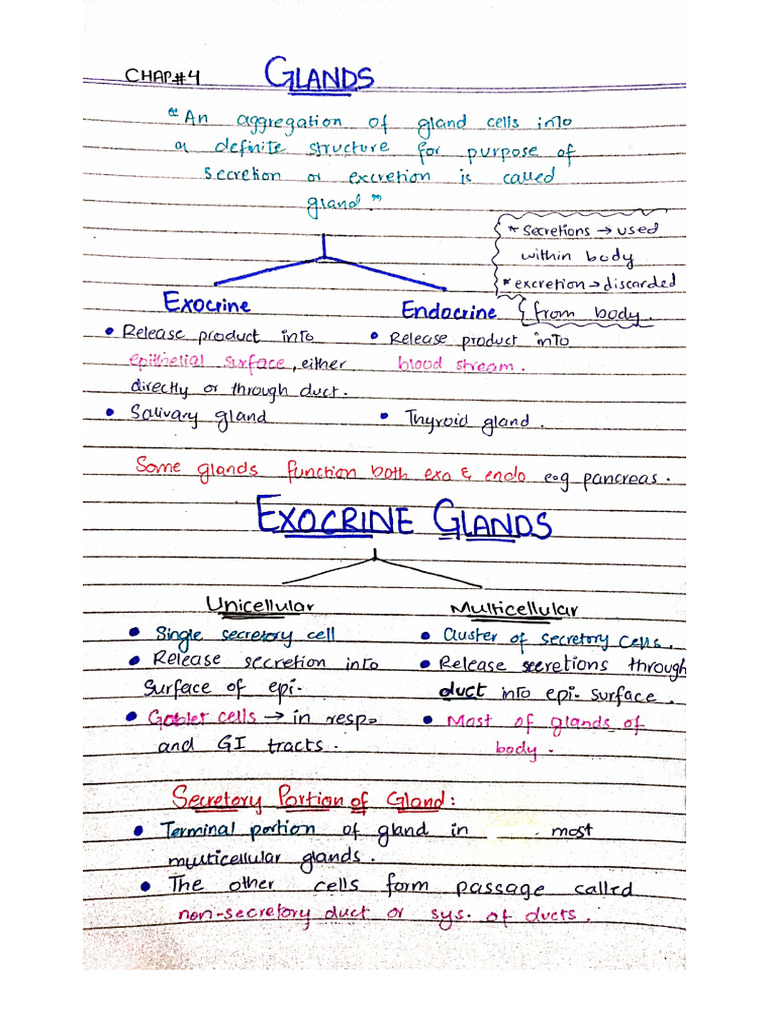 CHAP#4 GLANDS
"An aggregation of gland cells into
a definite structure for purpose of
secretion or excretion is called
gland."
* Secretions → used
within body
* excretion → discarded
from body.
Exocrine
• Release product into
epithelial surface, either
directly or through duct.
• Salivary gland
Endocrine
• Release product into
blood stream.
• Thyroid gland.
Some glands function both exo & endo e.g pancreas.
EXOCRINE GLANDS
Unicellular
• Single secretory cell
• Release secretion into
surface of epi.
• Goblet cells → in resp.
and GI tracts.
Multicellular
• Cluster of secretory cells.
• Release secretions through
duct into epi. surface.
• Most of glands of
body.
Secretory Portion of Gland:
• Terminal portion of gland in most
multicellular glands.
• The other cells form passage called
non-secretory duct or sys. of ducts.